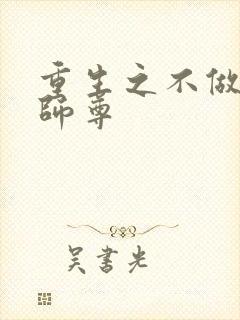 重生之不做
師尊
吴書光